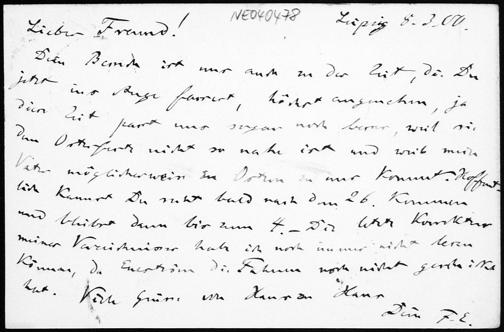 NE040478
Leipzig 8.3.00.
Lieber Freund!
Dein Besuch ist uns auch zu der Zeit, die Du
jetzt ins Auge fassest, höchst angenehm, ja
diese Zeit passt uns sogar noch besser, weil sie
dem Osterfeste nicht so nahe ist und weil mein
Vater möglicherweise zu Ostern zu uns kommt. Hoffent-
lich kannst Du recht bald nach dem 26. kommen
und bleibst dann bis zum 4. – Die letzte Korrektur
meines Verzeichnisses habe ich noch immer nicht lesen
können, da Eneström die Fahnen noch nicht geschickt
hat. Viele Grüsse von Haus zu Haus
Dein F.E.